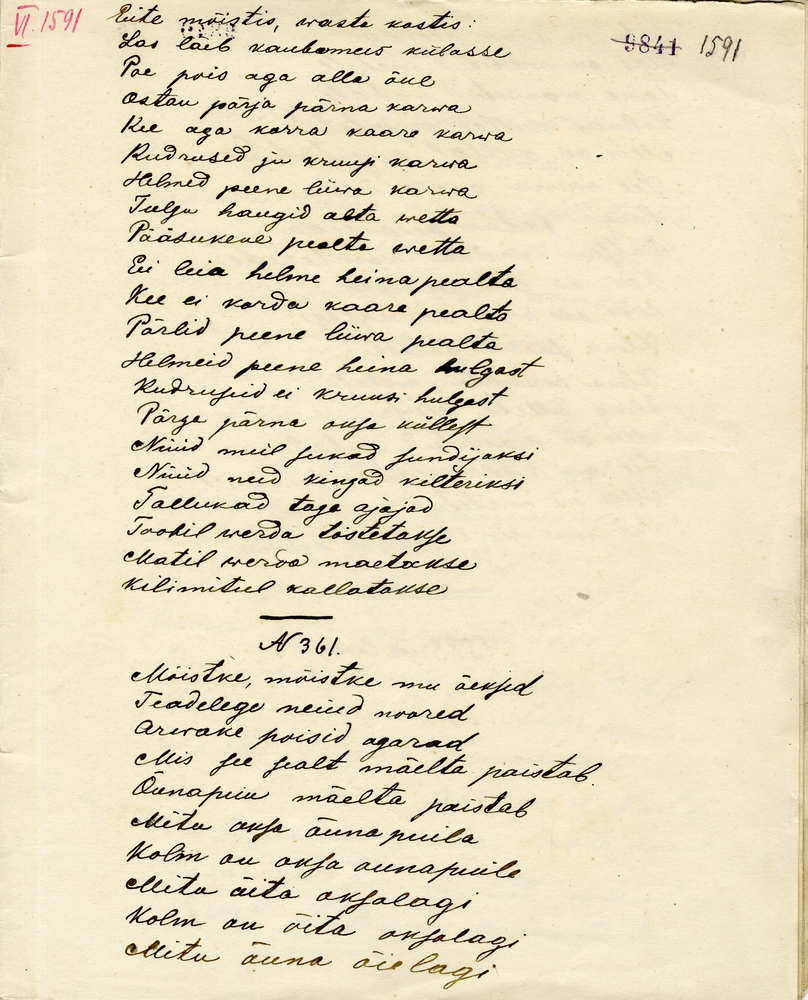 VI. 1591
9841 1591
Eite mõistis, wasta kostis:
Las läeb kaubamees külasse
Poe pois aga alla õue
Ostan pärja pärna karwa
Kee aga korra kaare karwa
Kudrused ju kruusi karwa
Helmed peene liiwa karwa
Tulgu haugid alta wetta
Pääsukene pealta wetta
Ei leia helme heina pealta
Kee ei korda kaare pealta
Pärlid peene liiwa pealta
Helmeid peene heina hulgast
Kudrusid ei kruusi hulgast
Pärga pärna oksa küllest
Nüüd meil sukad sundijaksi
Nüüd need kingad kilteriksi
Tallukad taga ajajad
Toobil werda tõstetakse
Matil werda mõetakse
Kilimitul kallatakse
N 361.
Mõistke, mõistke mu õeksed
Teadelege neiud noored
Arwake poisid agarad
Mis see sealt mäelta paistab.
Õunapuu mäelta paistab
Mitu oksa õunapuula
Kolm on oksa ounapuule
Mitu õita oksalagi
Kolm on õita oksalagi
Mitu õuna õielagi